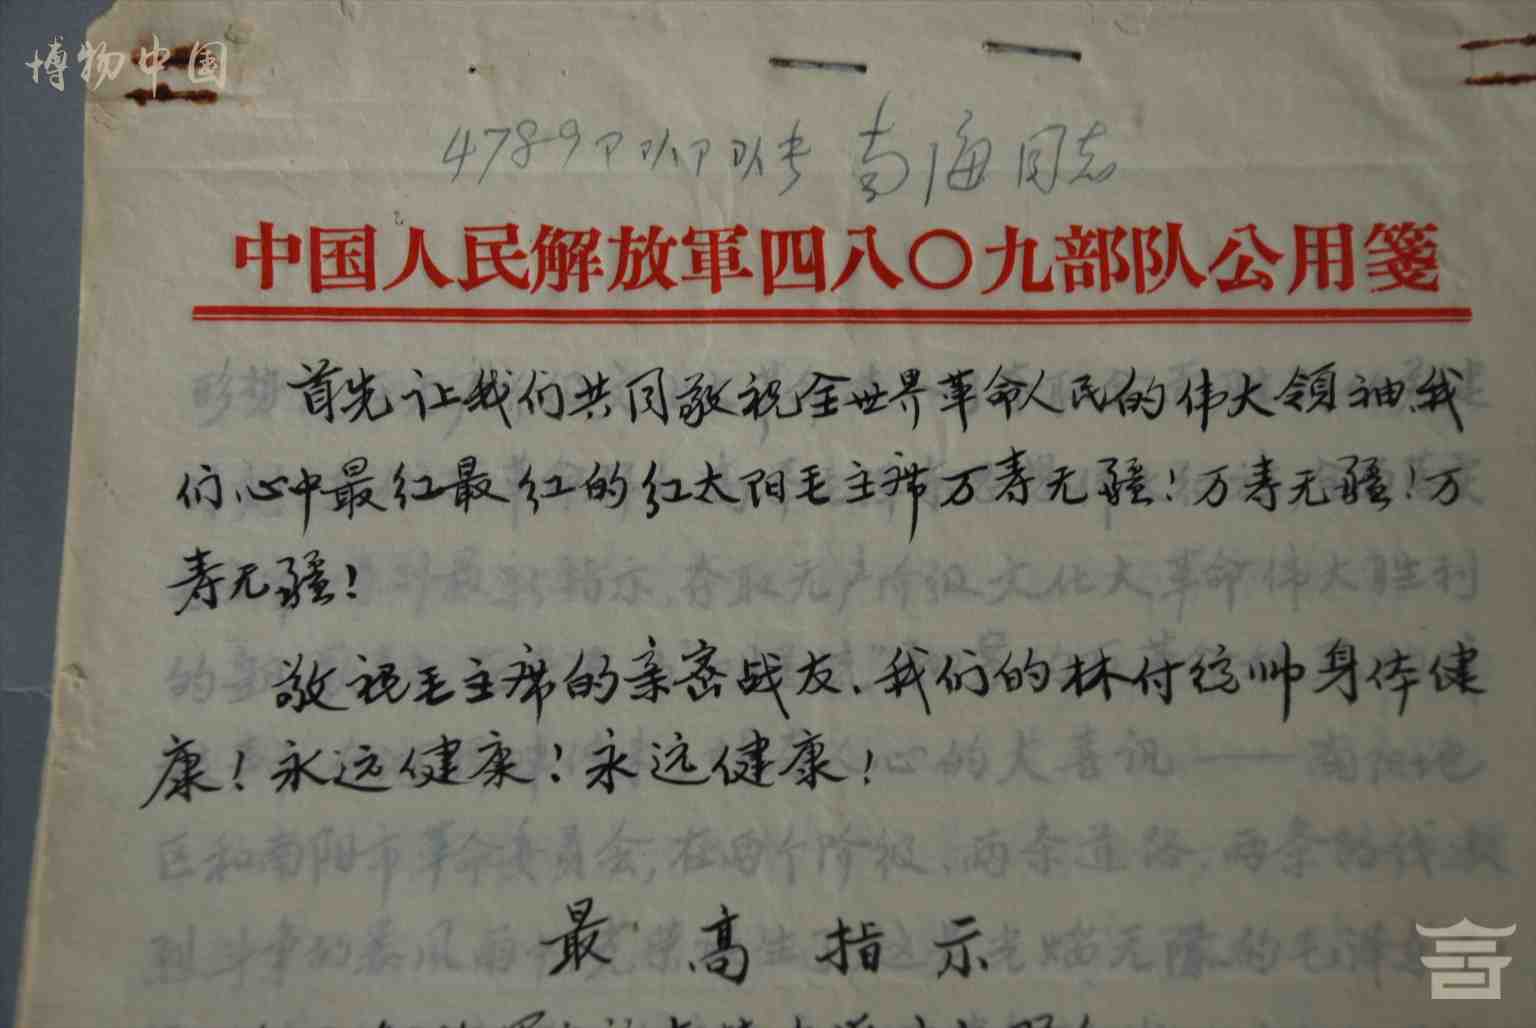 博物中国
4789部队部队长 南海同志
中国人民解放軍四八〇九部队公用箋
首先让我们共同敬祝全世界革命人民的伟大領袖,我
们心中最红最红的红太阳毛主席万寿无疆!万寿无疆!万
寿无疆!
敬祝毛主席的亲密战友、我们的林付统帅身体健
康!永远健康!永远健康!
最高指示